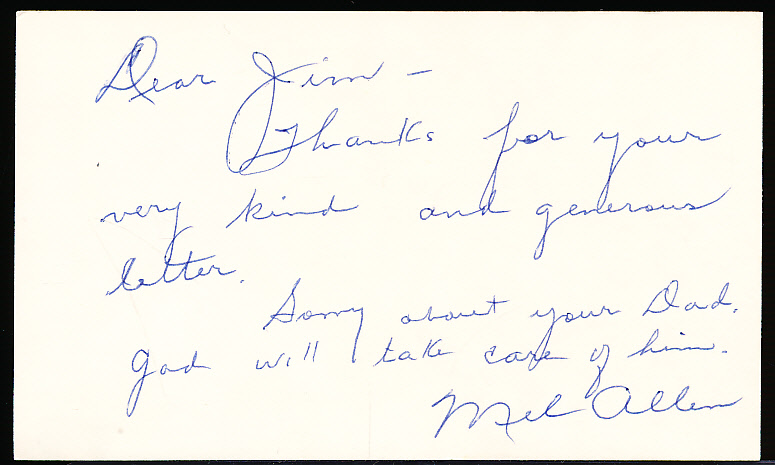 Dear Jim –
Thanks for your
very kind and generous
letter.
Sorry about your Dad.
God will take care of him.
Mel Allen